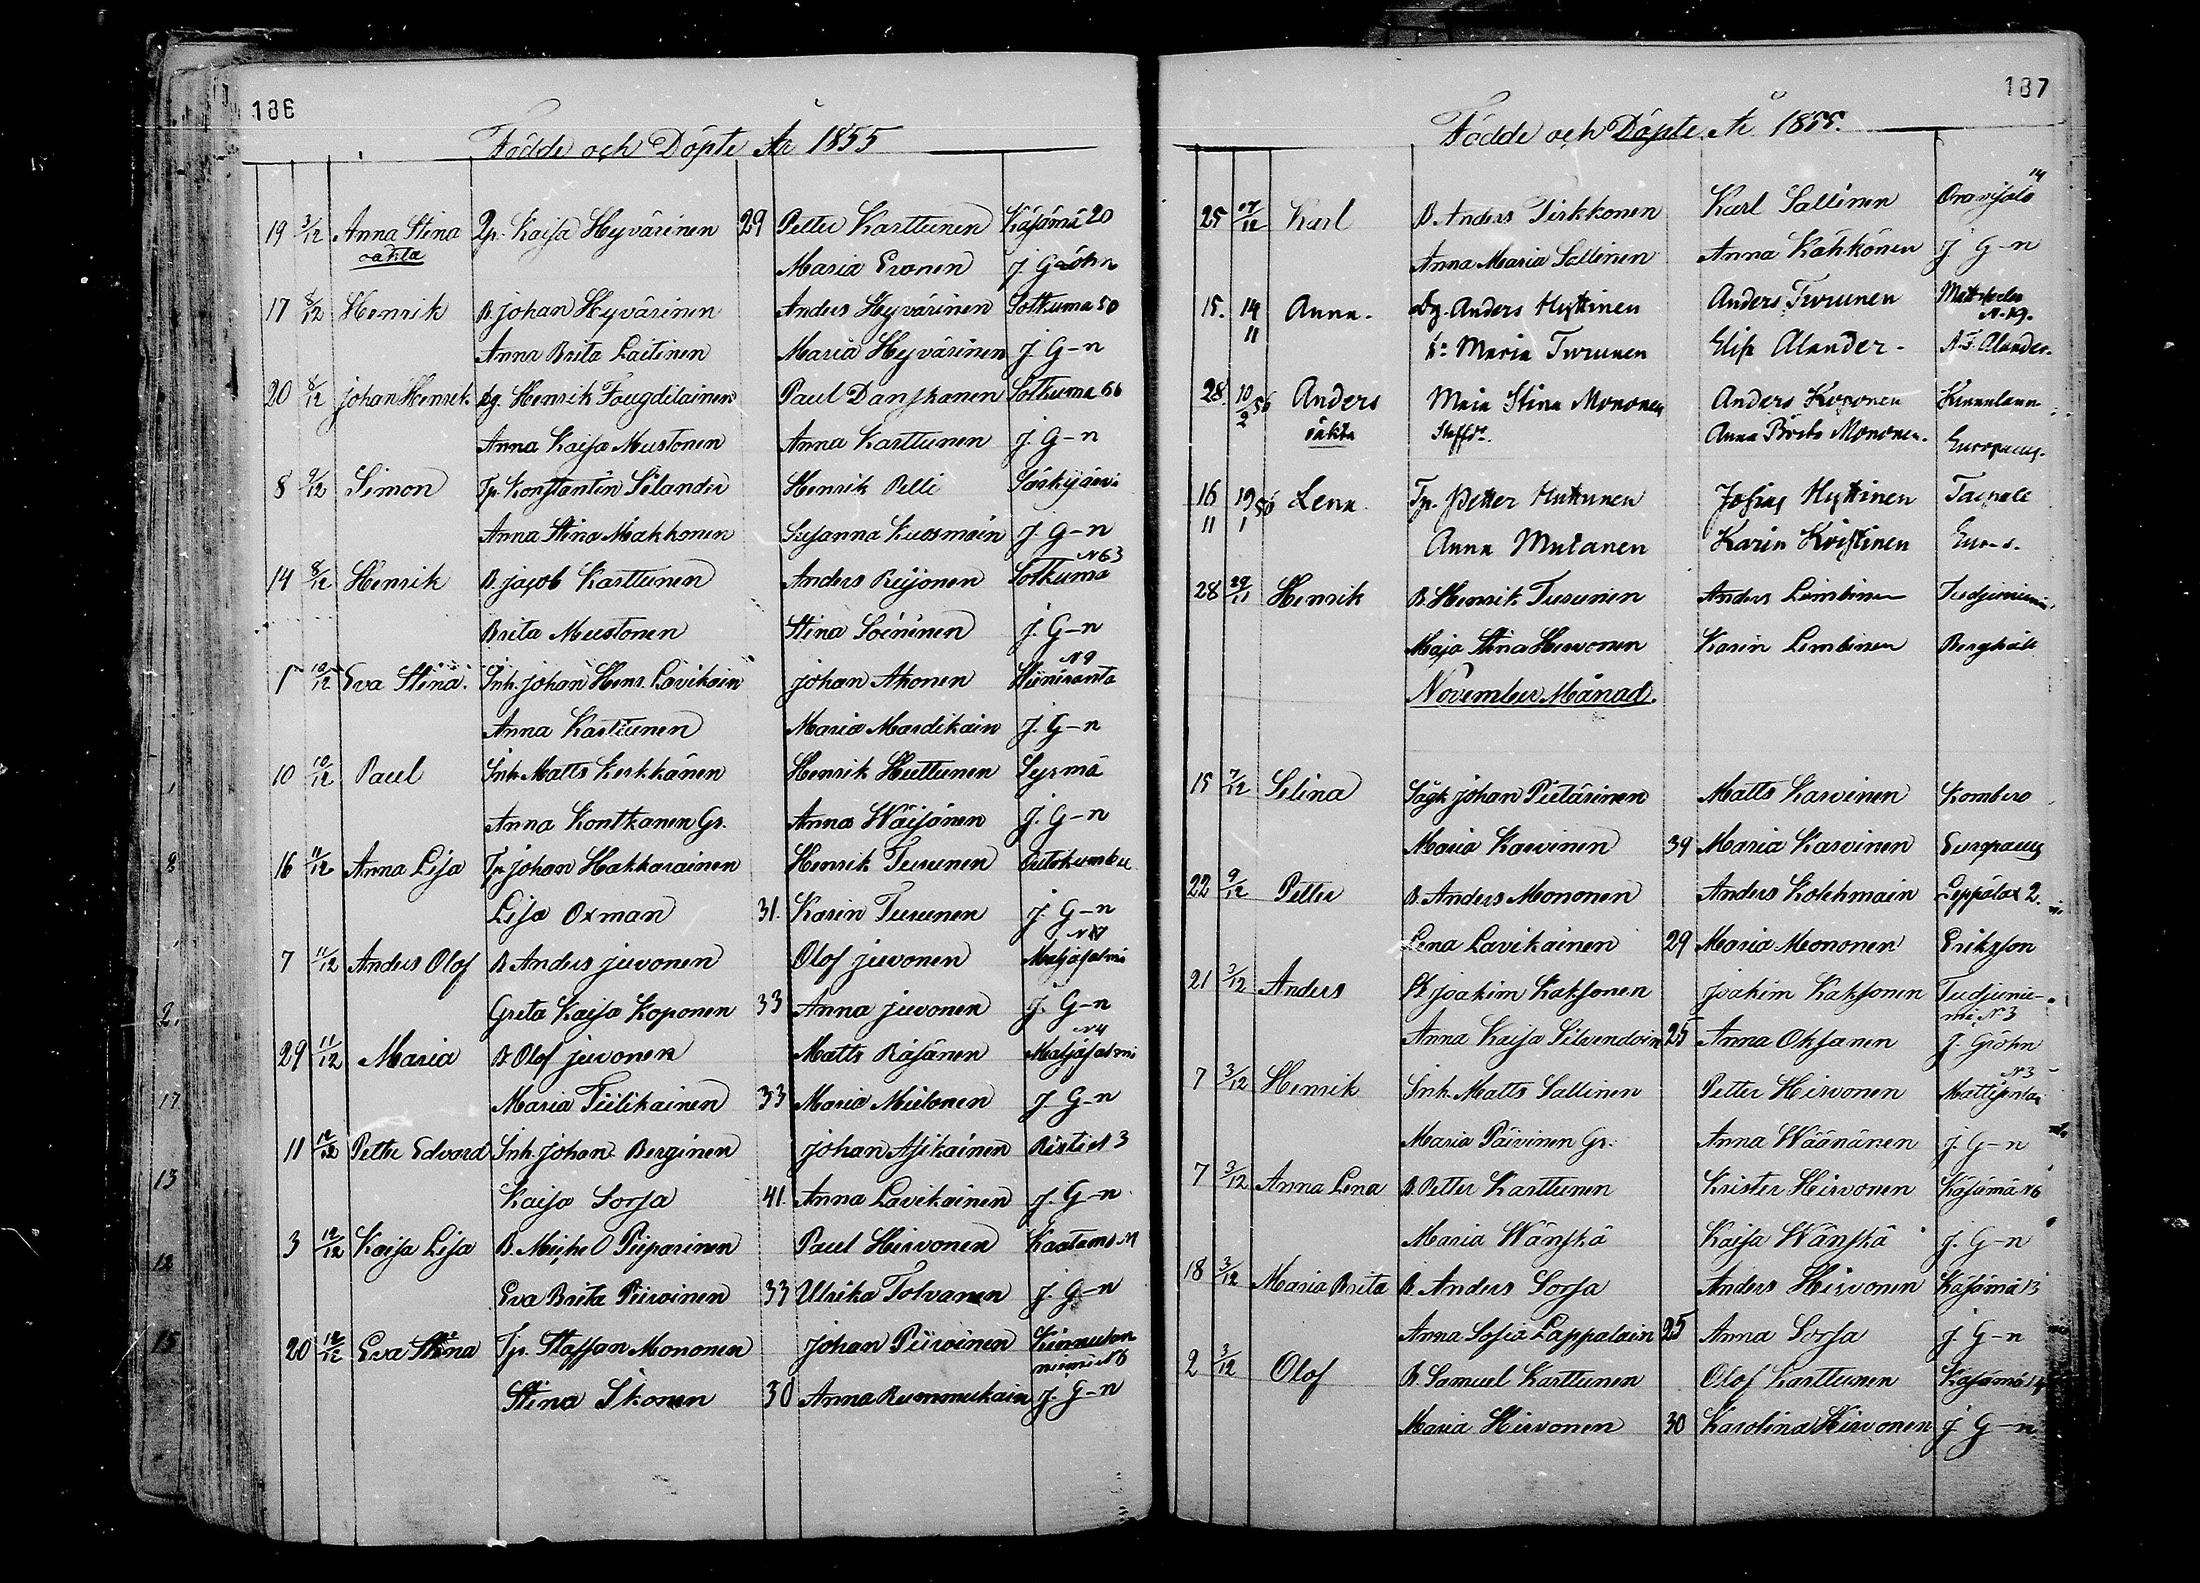 186
Födde och Döpte År 1855
19 3/12 Anna Stina Zp. Kaisa Hyvärinen 29 Petter Karttunen Käsämä 20
oäkta Maria Evonen J. Gröhn
17 8/12 Henrik B. Johan Hyvärinen Anders Hyvärinen Sotkuma 50
Anna Brita Laitinen Maria Hyvärinen J. G-n
20 8/12 Johan Henrik Dg. Henrik Fougdilainen Paul Danskanen Sotkuma 66
Anna Kaisa Mustonen Anna Karttunen J. G-n
8 9/12 Simon Tp. Konstantin Silander Henrik Pelli Särkijärvi
Anna Stina Makkonen Susanna Kuosmain J. G-n
14 8/12 Henrik B. Jacob Karttunen Anders Reijonen Sotkuma N 63
Brita Mustonen Stina Soininen J. G-n
1 10/12 Eva Stina Inh. Johan Henr. Lavikain Johan Ahonen Wiiniranta N 9
Anna Karttunen Maria Mardikain J. G-n
10 10/12 Paul Inh. Matts Kerkkänen Henrik Huttunen Sysmä
Anna Kontkanen Gr. Anna Wäisänen J. G-n
16 11/12 Anna Lisa Tp. Johan Hakkarainen Henrik Turunen Outokumbu
Lisa Oxman 31. Karin Turunen J. G-n
7 11/12 Anders Olof B. Anders Juvonen Olof Juvonen Maljasalmi
Greta Kaisa Koponen 33 Anna Juvonen J. G-n
29 11/12 Maria B. Olof Juvonen Matts Räsänen Maljasalmi N 4
Maria Tiilikainen 33 Maria Mietonen J. G-n
11 12/12 Petter Edvard Inh. Johan Berginen Johan Asikainen Risti N 3
Kaisa Sorsa 41. Anna Lavikainen J. G-n
3 12/12 Kaisa Lisa B. Michel Piiparinen Paul Hirvonen Kaatamo
Eva Brita Piiroinen 33 Ulrika Tolvanen J. G-n
20 12/12 Eva Stina Tp. Staffan Mononen Johan Piiroinen Kinnulan
niemi N 6
Stina Ikonen 30 Anna Rummukain J. G-n
187
Födde och Döpte År 1855.
25 17/12 Karl B. Anders Tirkkonen Karl Sallinen Oravisalo 14
Anna Maria Sallinen Anna Kähkönen J. G-n
15. 14/11 Anna. Dg. Anders Hyttinen Anders Turunen N. 19.
h: Maria Turunen Elis Alander. A. F. Alander.
28. 10/2 56 Anders Maia Stina Mononen Anders Koponen
oäkta Anna Brita Mononen. Europaeus.
16/11 19/1 56 Lena Tp. Petter Huttunen Josias Hyttinen Taipale
Anna Mutanen Karin Kristinen
28 29/11 Henrik B. Henrik Turunen Anders Limbinen Tudjuniemi
Maja Stina Hirvonen Karin Limbinen Berghäll
November Månad.
15 7/12 Selina Sågk. Johan Pietarinen Matts Karvinen Kombero
Maria Karvinen 39 Maria Karvinen Europaeus
22 9/12 Petter B. Anders Mononen Anders Kolehmain Leppälax 2.
Lena Lavikainen 29 Maria Mononen Eriksson
21 3/12 Anders Joakim Kaksonen Joakim Kaksonen Tudjunie-
mi N 3
Anna Kaisa Silvendoin 25 Anna Oksanen J. Gröhn
7 3/12 Henrik Inh. Matts Sallinen Petter Hirvonen Mattisenlax N 3
Maria Päivinen Gr. Anna Wäänänen J. G-n
7 3/12 Anna Lena B. Petter Karttunen Krister Hirvonen Käsämä 16
Maria Wänskä Kaisa Wänskä J. G-n
18 3/12 Maria Brita B. Anders Sorsa Anders Hirvonen Käsämä 13
Anna Sofia Lappalain 25 Anna Sorsa J. G-n
2 3/12 Olof B. Samuel Karttunen Olof Karttunen Käsämä 14
Maria Hirvonen 30 Karolina Hirvonen J. G-n